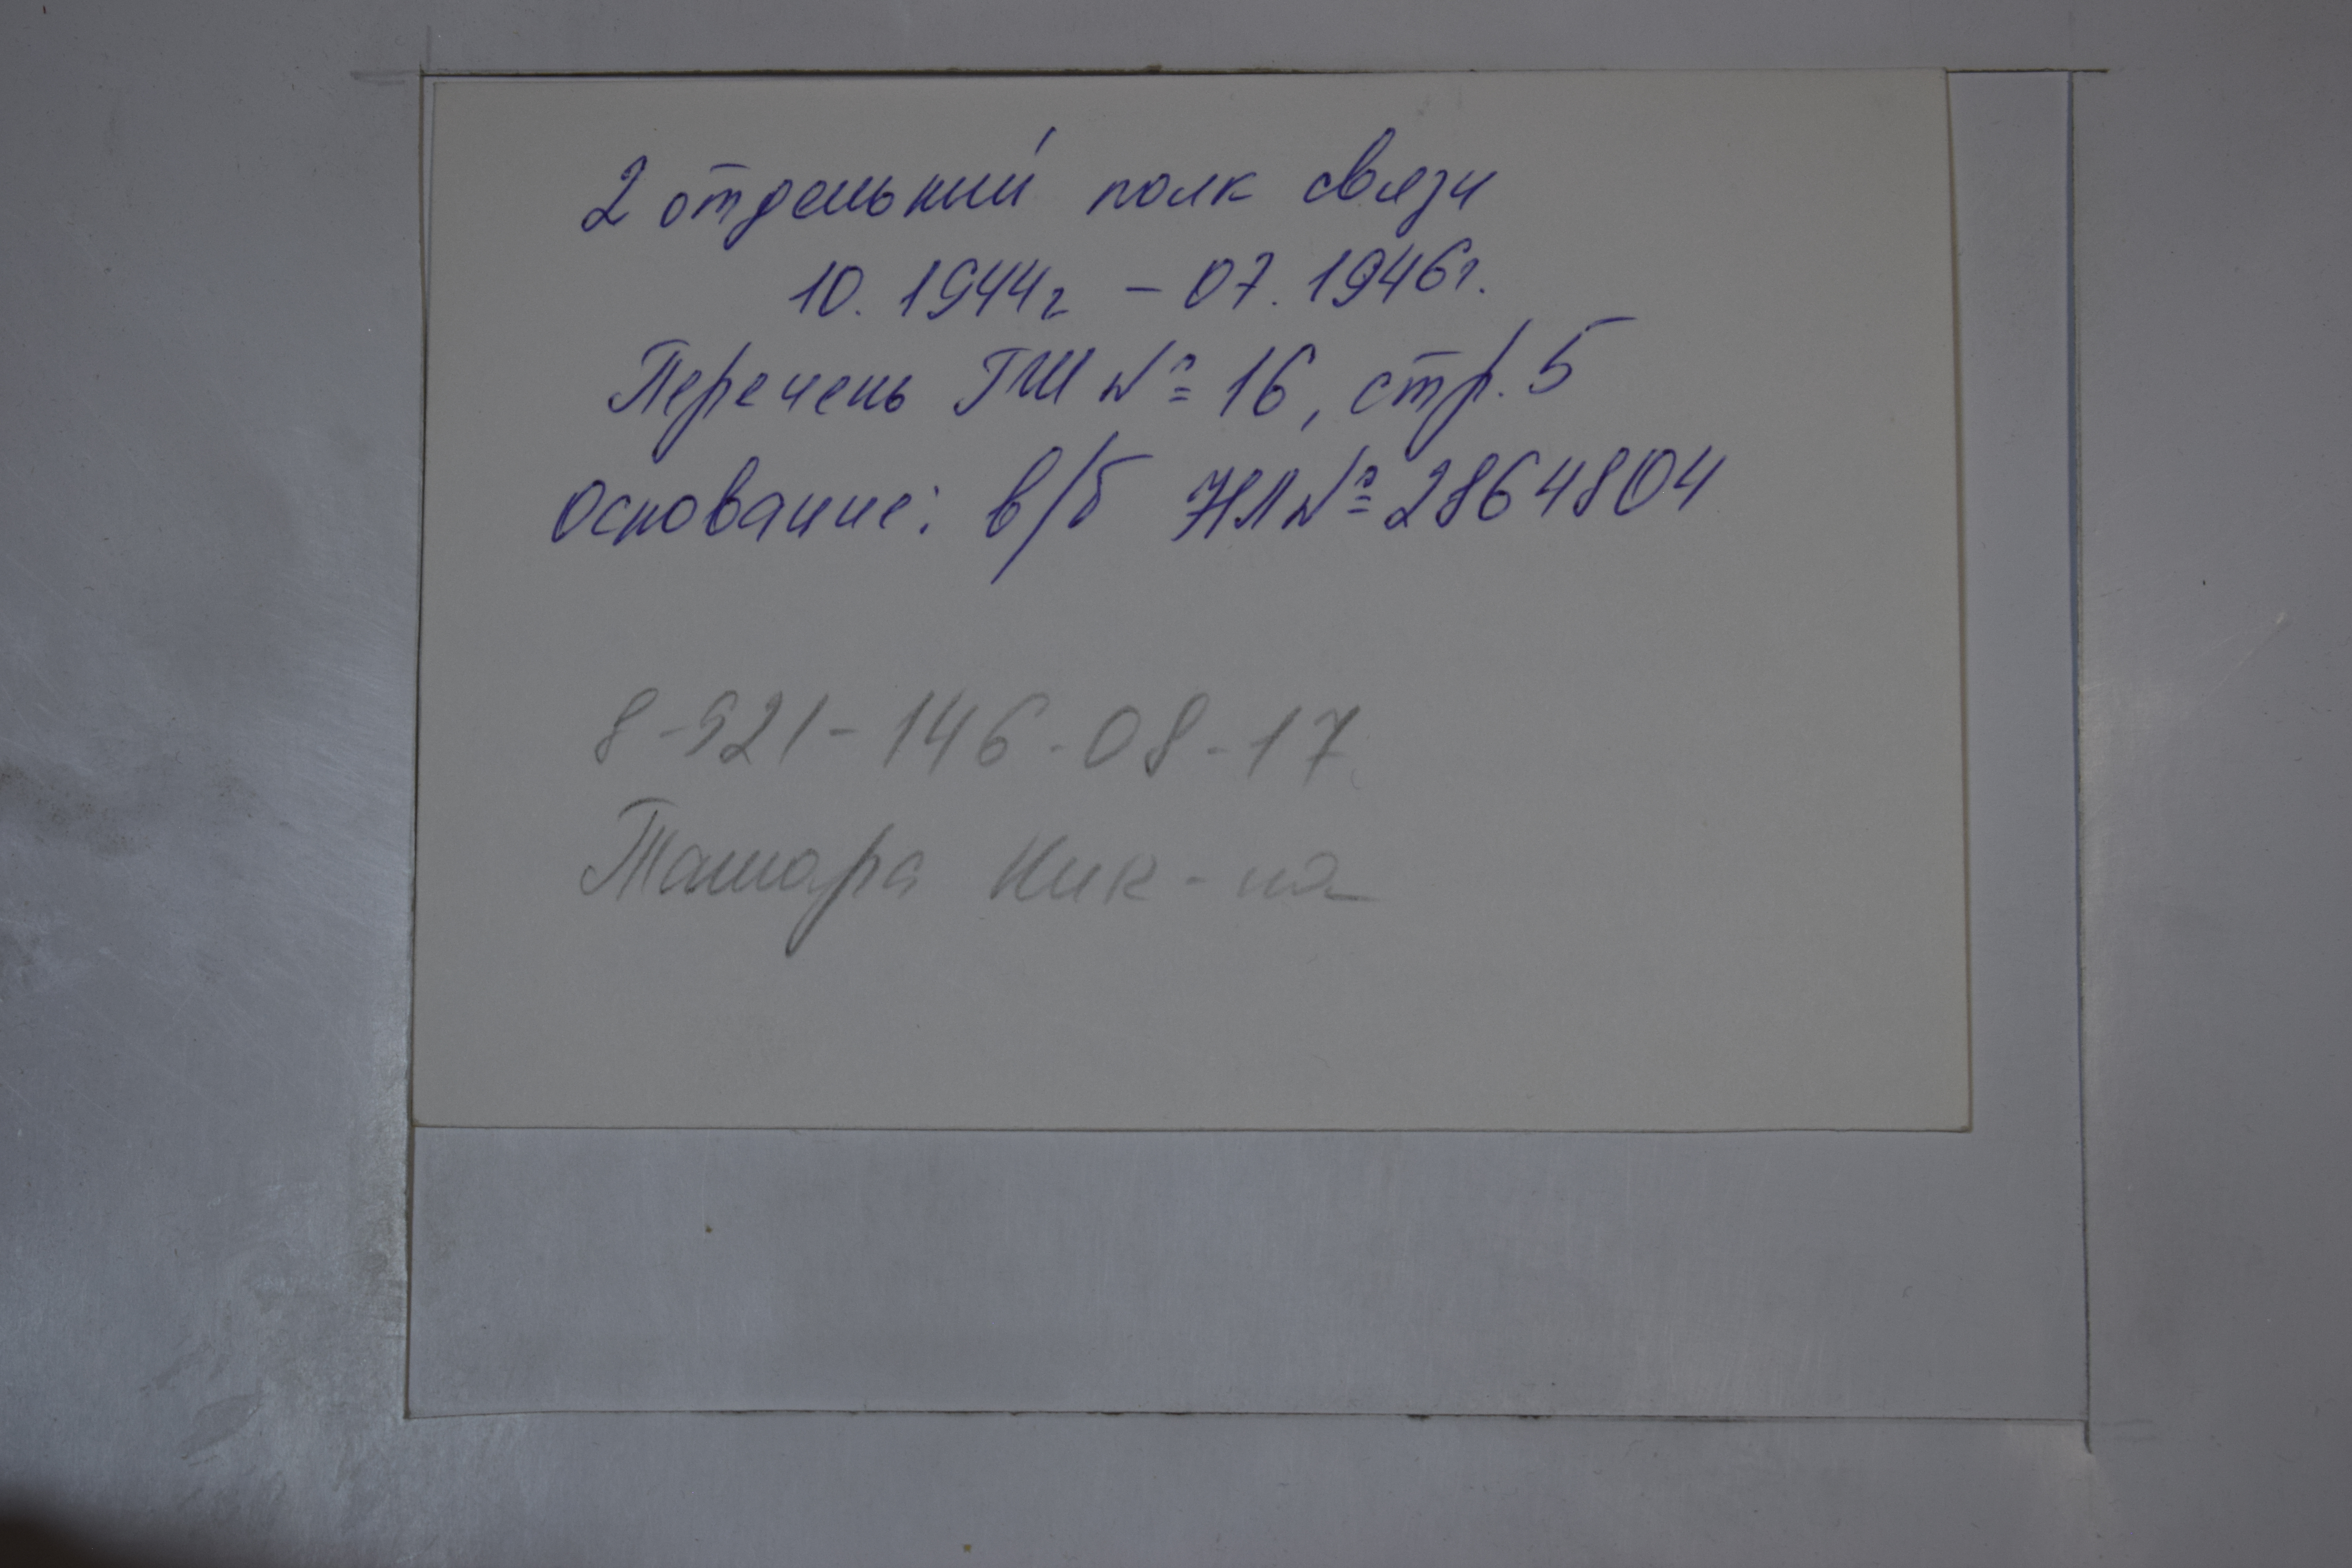 2 отдельный полк связи
10. 1944г – 07. 1946г.
Перечень ГШ № 16, стр. 5
Основание: в/б НЛ № 2864804
8-921-146-08-17
Тамара Ник-на